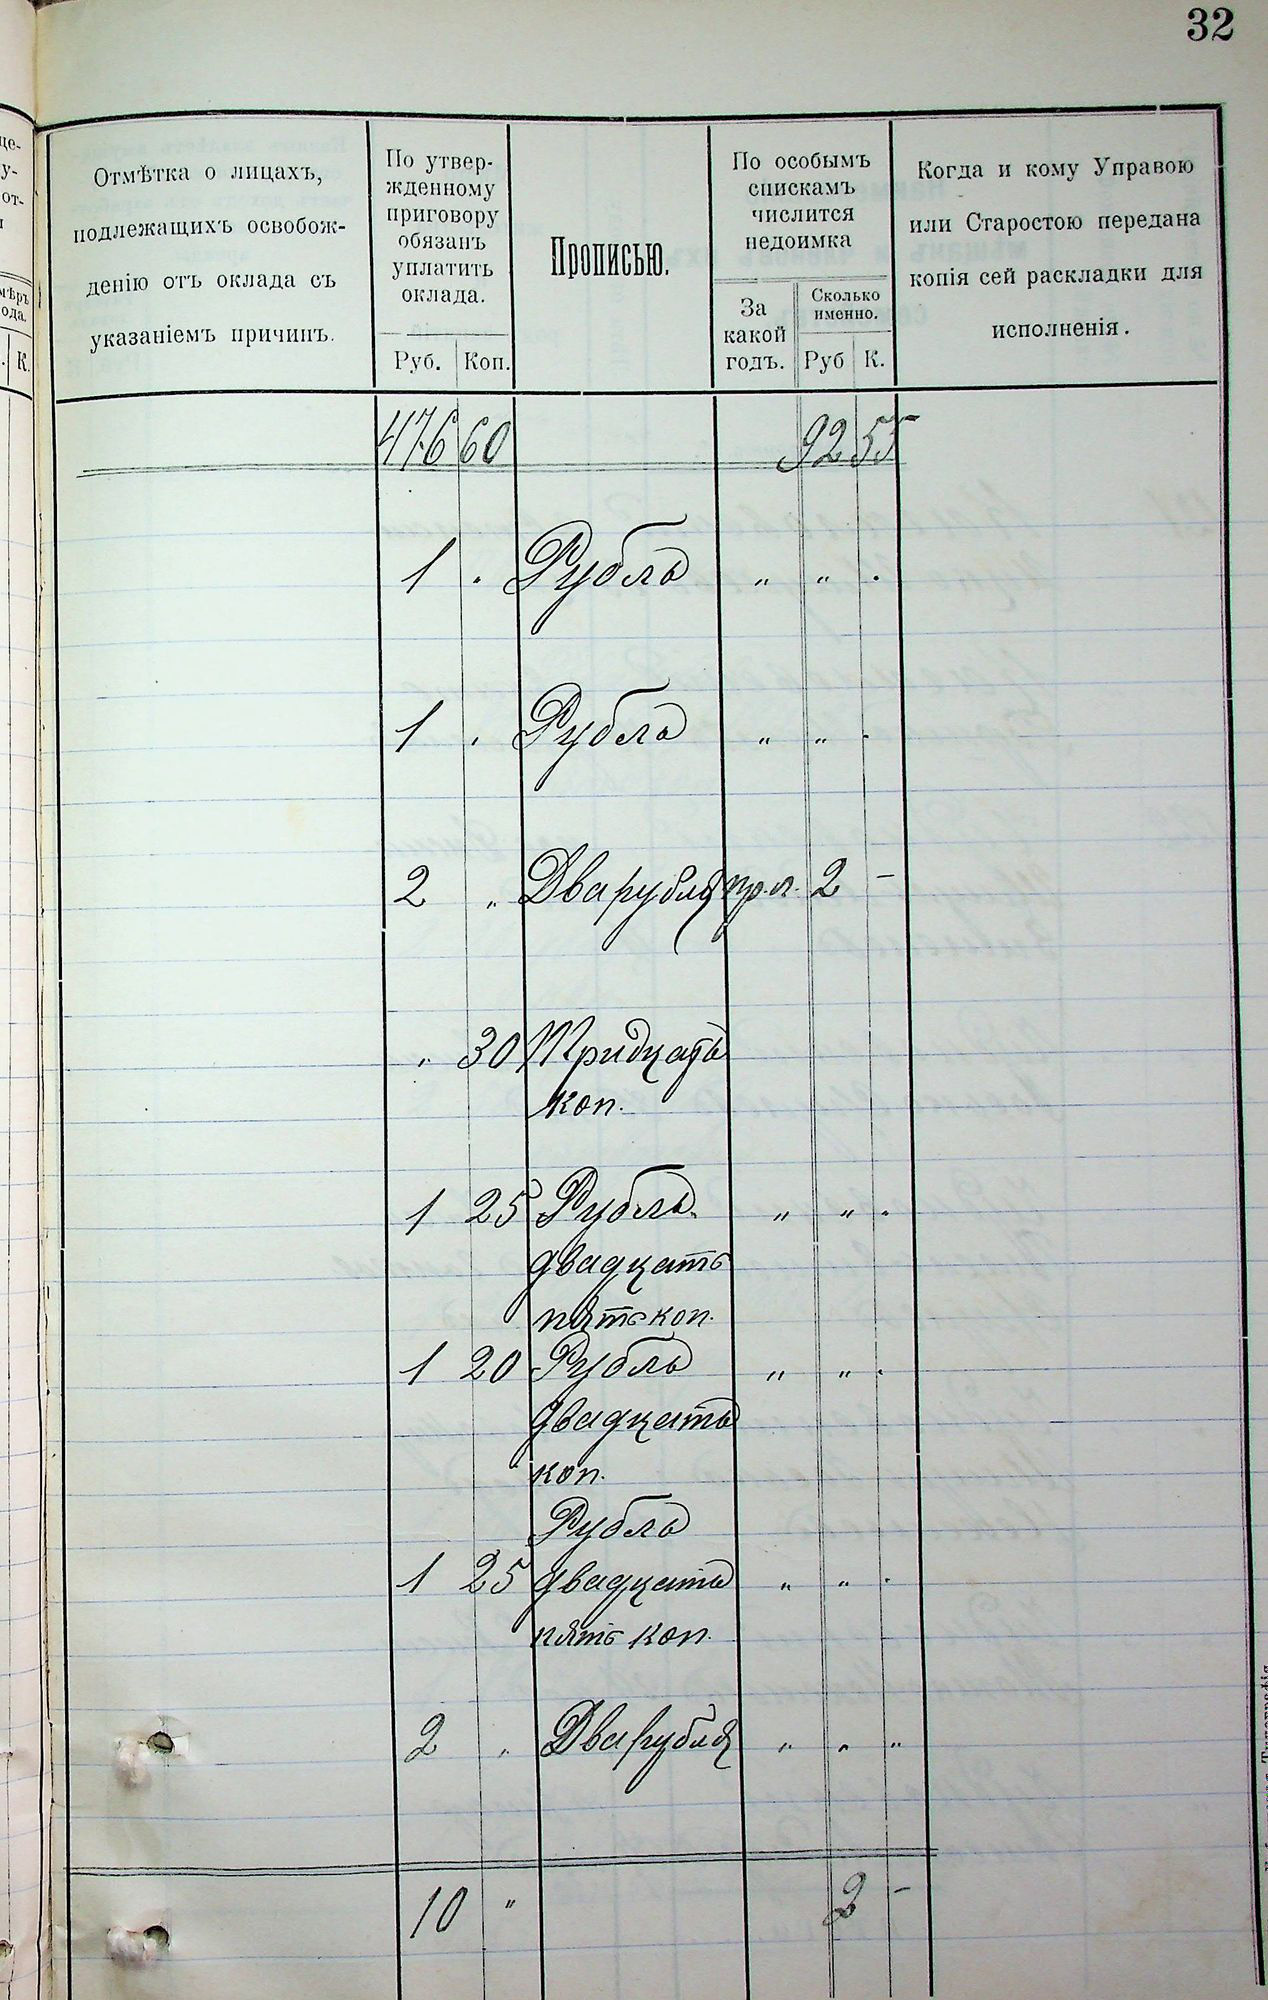 32
Отмѣтка о лицахъ,
подлежащихъ освобож-
денію отъ оклада съ
указаніемъ причинъ.
По утвер-
жденному
приговору
обязанъ
уплатить
оклада.
Руб. Коп.
Прописью.
По особымъ
спискамъ
числится
недоимка
За
какой
годъ.
Сколько
именно.
Руб К.
Когда и кому Управою
или Старостою передана
копія сей раскладки для
исполненія.
476 60 92 55
1 . Рубль „ „ .
1 . Рубль „ „ .
2 „ Два рубля пр. л. 2 –
„ 30 Тридцать
коп.
1 25 Рубль „ „ .
двадцать
пять коп.
1 20 Рубль „ „ .
двадцать
коп.
Рубль
1 25 двадцать „ „ .
пять коп.
2 „ Два рубля „ „ „
10 „ 2 –